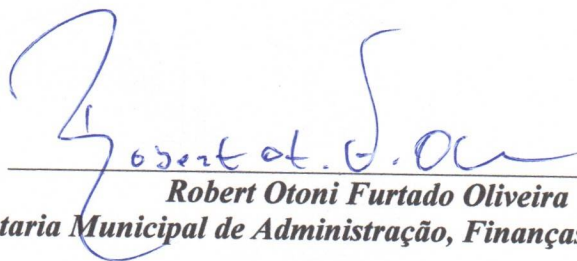 Robert Ot. F. Ol
Robert Otoni Furtado Oliveira
taria Municipal de Administração, Finanças